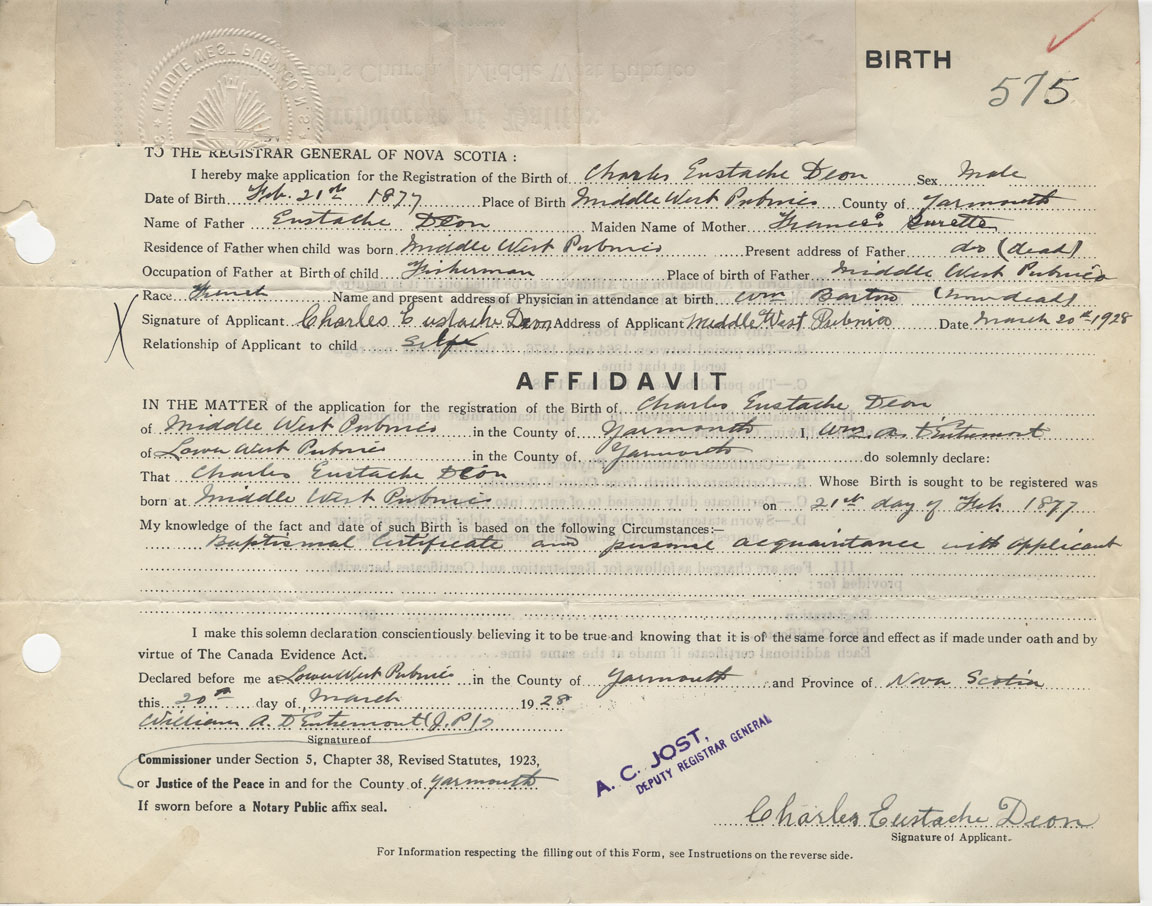 BIRTH
575
MIDDLE WEST PUBNICO N.S.
TO THE REGISTRAR GENERAL OF NOVA SCOTIA :
I hereby make application for the Registration of the Birth of Charles Eustache Deon Sex Male
Date of Birth Feb. 21st 1877 Place of Birth Middle West Pubnico County of Yarmouth
Name of Father Eustache Deon Maiden Name of Mother Frances Surette
Residence of Father when child was born Middle West Pubnico Present address of Father do (dead)
Occupation of Father at Birth of child Fisherman Place of birth of Father Middle West Pubnico
Race French Name and present address of Physician in attendance at birth Wm Barton (now dead)
X Signature of Applicant Charles Eustache Deon Address of Applicant Middle West Pubnico Date March 20th 1928
Relationship of Applicant to child Self
AFFIDAVIT
IN THE MATTER of the application for the registration of the Birth of Charles Eustache Deon
of Middle West Pubnico in the County of Yarmouth I, Wm A. d'Entremont
of Lower West Pubnico in the County of Yarmouth do solemnly declare:
That Charles Eustache Deon Whose Birth is sought to be registered was
born at Middle West Pubnico on 21st day of Feb. 1877
My knowledge of the fact and date of such Birth is based on the following Circumstances:–
Baptismal Certificate and personal acquaintance with applicant
I make this solemn declaration conscientiously believing it to be true and knowing that it is of the same force and effect as if made under oath and by
virtue of The Canada Evidence Act.
Declared before me at Lower West Pubnico in the County of Yarmouth and Province of Nova Scotia
this 20th day of March 1928
William A. D'Entremont (J.P.)
Signature of
Commissioner under Section 5, Chapter 38, Revised Statutes, 1923,
or Justice of the Peace in and for the County of Yarmouth
If sworn before a Notary Public affix seal.
A. C. JOST,
DEPUTY REGISTRAR GENERAL
Charles Eustache Deon
Signature of Applicant.
For Information respecting the filling out of this Form, see Instructions on the reverse side.